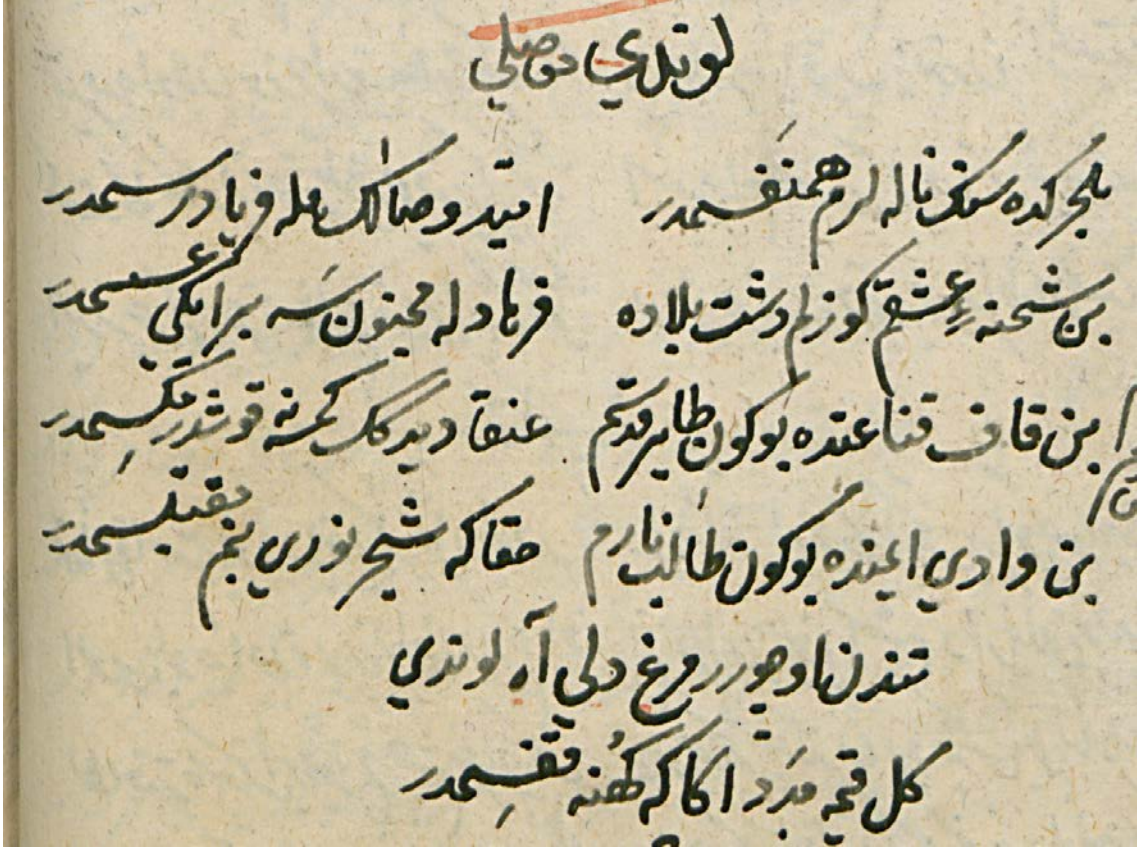 لوندي موصلي
هجركده سنك ناله لرم همنفسمدر اميد وصالك هله فريادرسمدر
بن شحنه عشقم كوزلم دشت بلاده فرهاد له مجنون سه بر ايكي عسسمدر
بن قاف قناعتده بوكون طاير قدسم عنقا ديدكك كمسه قوشدر مكسمدر
بن وادي ايمنده بوكون طالب نارم حقا كه شجر نوري بنم مقتبسمدر
تندن اوچورر مرغ دلي آه لوندي
كل قيمه مدد اكا كه كهنه قفسمدر